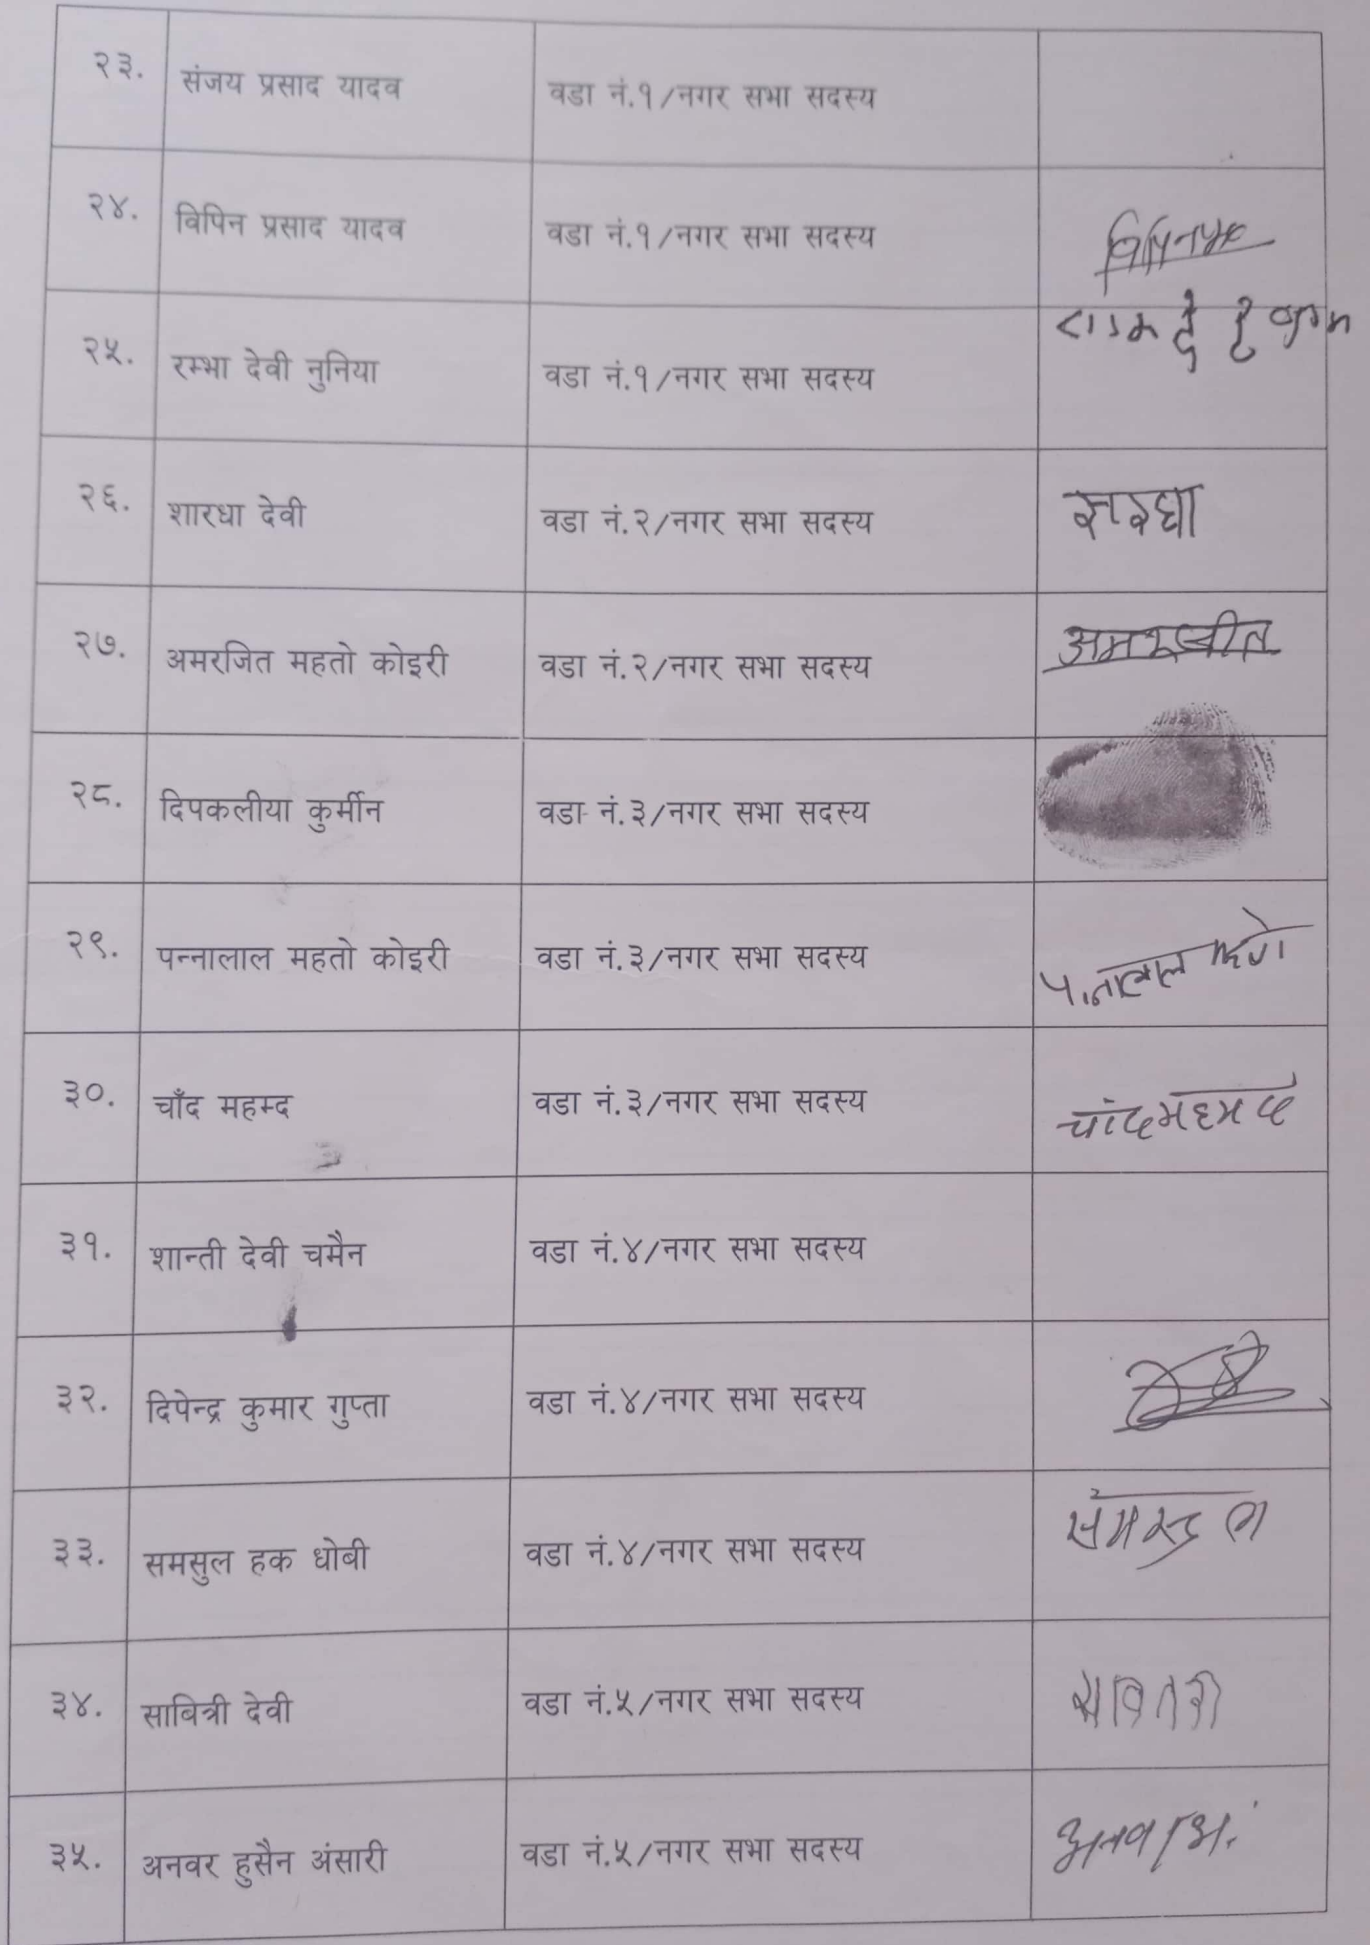 २३. संजय प्रसाद यादव वडा नं.१/नगर सभा सदस्य
२४. विपिन प्रसाद यादव वडा नं.१/नगर सभा सदस्य
२५. रम्भा देवी नुनिया वडा नं.१/नगर सभा सदस्य
२६. शारधा देवी वडा नं.२/नगर सभा सदस्य
२७. अमरजित महतो कोइरी वडा नं.२/नगर सभा सदस्य अमरजीत
२८. दिपकलीया कुर्मीन वडा नं.३/नगर सभा सदस्य
२९. पन्नालाल महतो कोइरी वडा नं.३/नगर सभा सदस्य
३०. चाँद महम्द वडा नं.३/नगर सभा सदस्य चांदमहमद
३१. शान्ती देवी चमैन वडा नं.४/नगर सभा सदस्य
३२. दिपेन्द्र कुमार गुप्ता वडा नं.४/नगर सभा सदस्य
३३. समसुल हक धोबी वडा नं.४/नगर सभा सदस्य
३४. साबित्री देवी वडा नं.५/नगर सभा सदस्य
३५. अनवर हुसैन अंसारी वडा नं.५/नगर सभा सदस्य